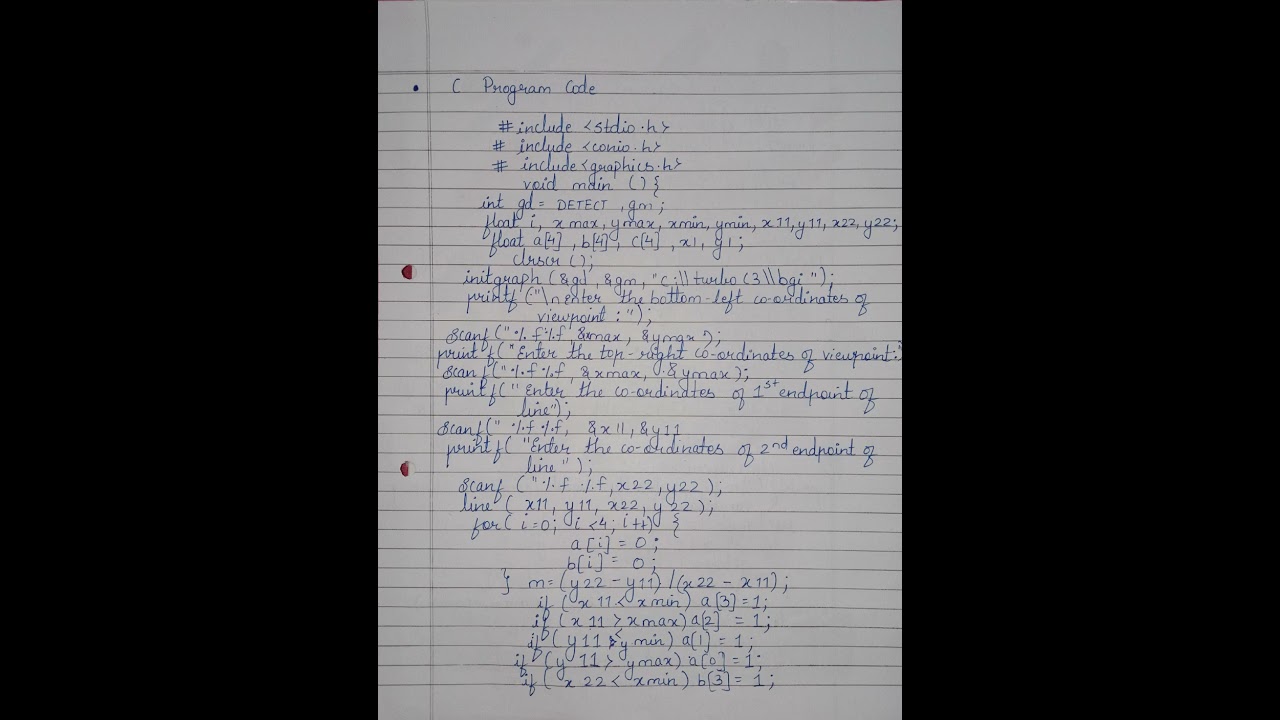 • C Program Code
# include <stdio.h>
# include <conio.h>
# include <graphics.h>
void main () {
int gd = DETECT, gm;
float i, xmax, ymax, xmin, ymin, x11, y11, x22, y22;
float a[4], b[4], c[4], x1, y1;
clrscr ();
initgraph (&gd, &gm, "c:\\turboc3\\bgi");
printf ("\n enter the bottom-left co-ordinates of
viewpoint : ");
scanf (" %f %f, &xmax, &ymax");
printf ("Enter the top-right co-ordinates of viewpoint:"
scanf (" %f %f, &xmax, &ymax);
printf (" Enter the co-ordinates of 1st endpoint of
line");
scanf (" %f %f, &x11, &y11
printf ( "Enter the co-ordinates of 2nd endpoint of
line" );
scanf ( " %f %f, x22, y22 );
line ( x11, y11, x22, y22 );
for ( i=0; i<4; i++) {
a[i] = 0 ;
b[i] = 0 ;
} m = (y22 - y11) / (x22 - x11) ;
if ( x11 < xmin) a[3] = 1;
if ( x11 > xmax) a[2] = 1;
if ( y11 < ymin) a[1] = 1;
if ( y11 > ymax) a[0] = 1;
if ( x22 < xmin) b[3] = 1 ;